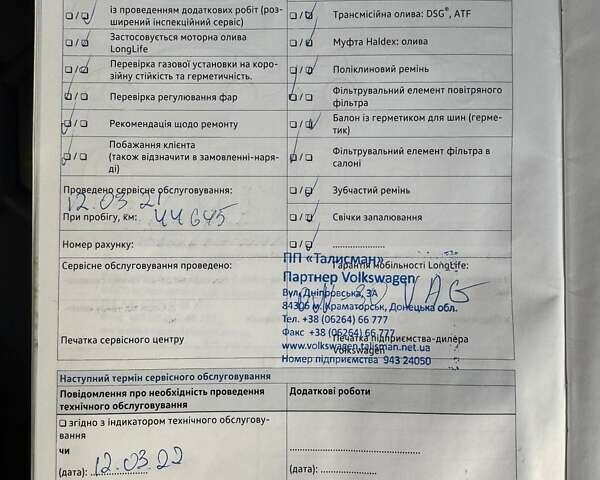 із проведенням додаткових робіт (роз-
ширений інспекційний сервіс)
Застосовується моторна олива
LongLife
Перевірка газової установки на коро-
зійну стійкість та герметичність.
Перевірка регулювання фар
Рекомендація щодо ремонту
Побажання клієнта
(також відзначити в замовленні-наря-
ді)
Трансмісійна олива: DSG®, ATF
Муфта Haldex: олива
Поліклиновий ремінь
Фільтрувальний елемент повітряного
фільтра
Балон із герметиком для шин (герме-
тик)
Фільтрувальний елемент фільтра в
салоні
Зубчастий ремінь
Свічки запалювання
Проведено сервісне обслуговування:
12.03.21
При пробігу, км: 44645
Номер рахунку:
Сервісне обслуговування проведено:
Гарантія мобільності LongLife:
ПП «Талисман»
Партнер Volkswagen
Вул. Дніпровська, 3А
84306 м. Краматорськ, Донецька обл.
Тел. +38 (06264) 66 777
Факс +38 (06264) 66 777
www.volkswagen.talisman.net.ua
Номер підприємства 943 24050
VAG
Печатка сервісного центру
Печатка підприємства-дилера
Volkswagen
Наступний термін сервісного обслуговування
Повідомлення про необхідність проведення
технічного обслуговування
Додаткові роботи
згідно з індикатором технічного обслугову-
вання
чи
(дата): 12.03.22
(дата):